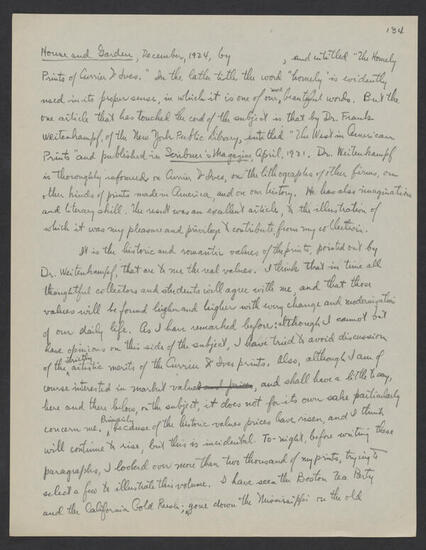 134
House and Garden, December, 1924, by , and entitled "The Homely
Prints of Currier & Ives." In the latter title the word "homely" is evidently
used in its proper sense, in which it is one of our most beautiful words. But the
one article that has touched the cord of the subject is that by Dr. Frank
Weitenkampf, of the New York Public Library, entitled "The West in American
Prints" and published in Scribner's Magazine, April, 1921. Dr. Weitenkampf
is thoroughly informed on Currier & Ives, on the lithographs of other firms, on
other kinds of prints made in America, and on our history. He has also imagination
and literary skill. The result was an excellent article, to the illustration of
which it was my pleasure and privilege to contribute from my collection.
It is the historic and romantic values of the prints, pointed out by
Dr. Weitenkampf, that are to me the real values. I think that in time all
thoughtful collectors and students will agree with me and that those
values will be found higher and higher with every change and modernization
of our daily life. As I have remarked before: although I cannot but
have opinions on this side of the subject, I have tried to avoid discussion
of the strictly artistic merits of the Currier & Ives prints. Also, although I am of
course interested in market values and prices, and shall have a little to say,
here and there below, on the subject, it does not for its own sake particularly
concern me. Principally because of the historic values prices have risen, and I think
will continue to rise, but this is incidental. To-night, before writing these
paragraphs, I looked over more than two thousand of my prints, trying to
select a few to illustrate this volume. I have seen the Boston Tea Party
and the California Gold Rush; gone down the Mississippi on the old